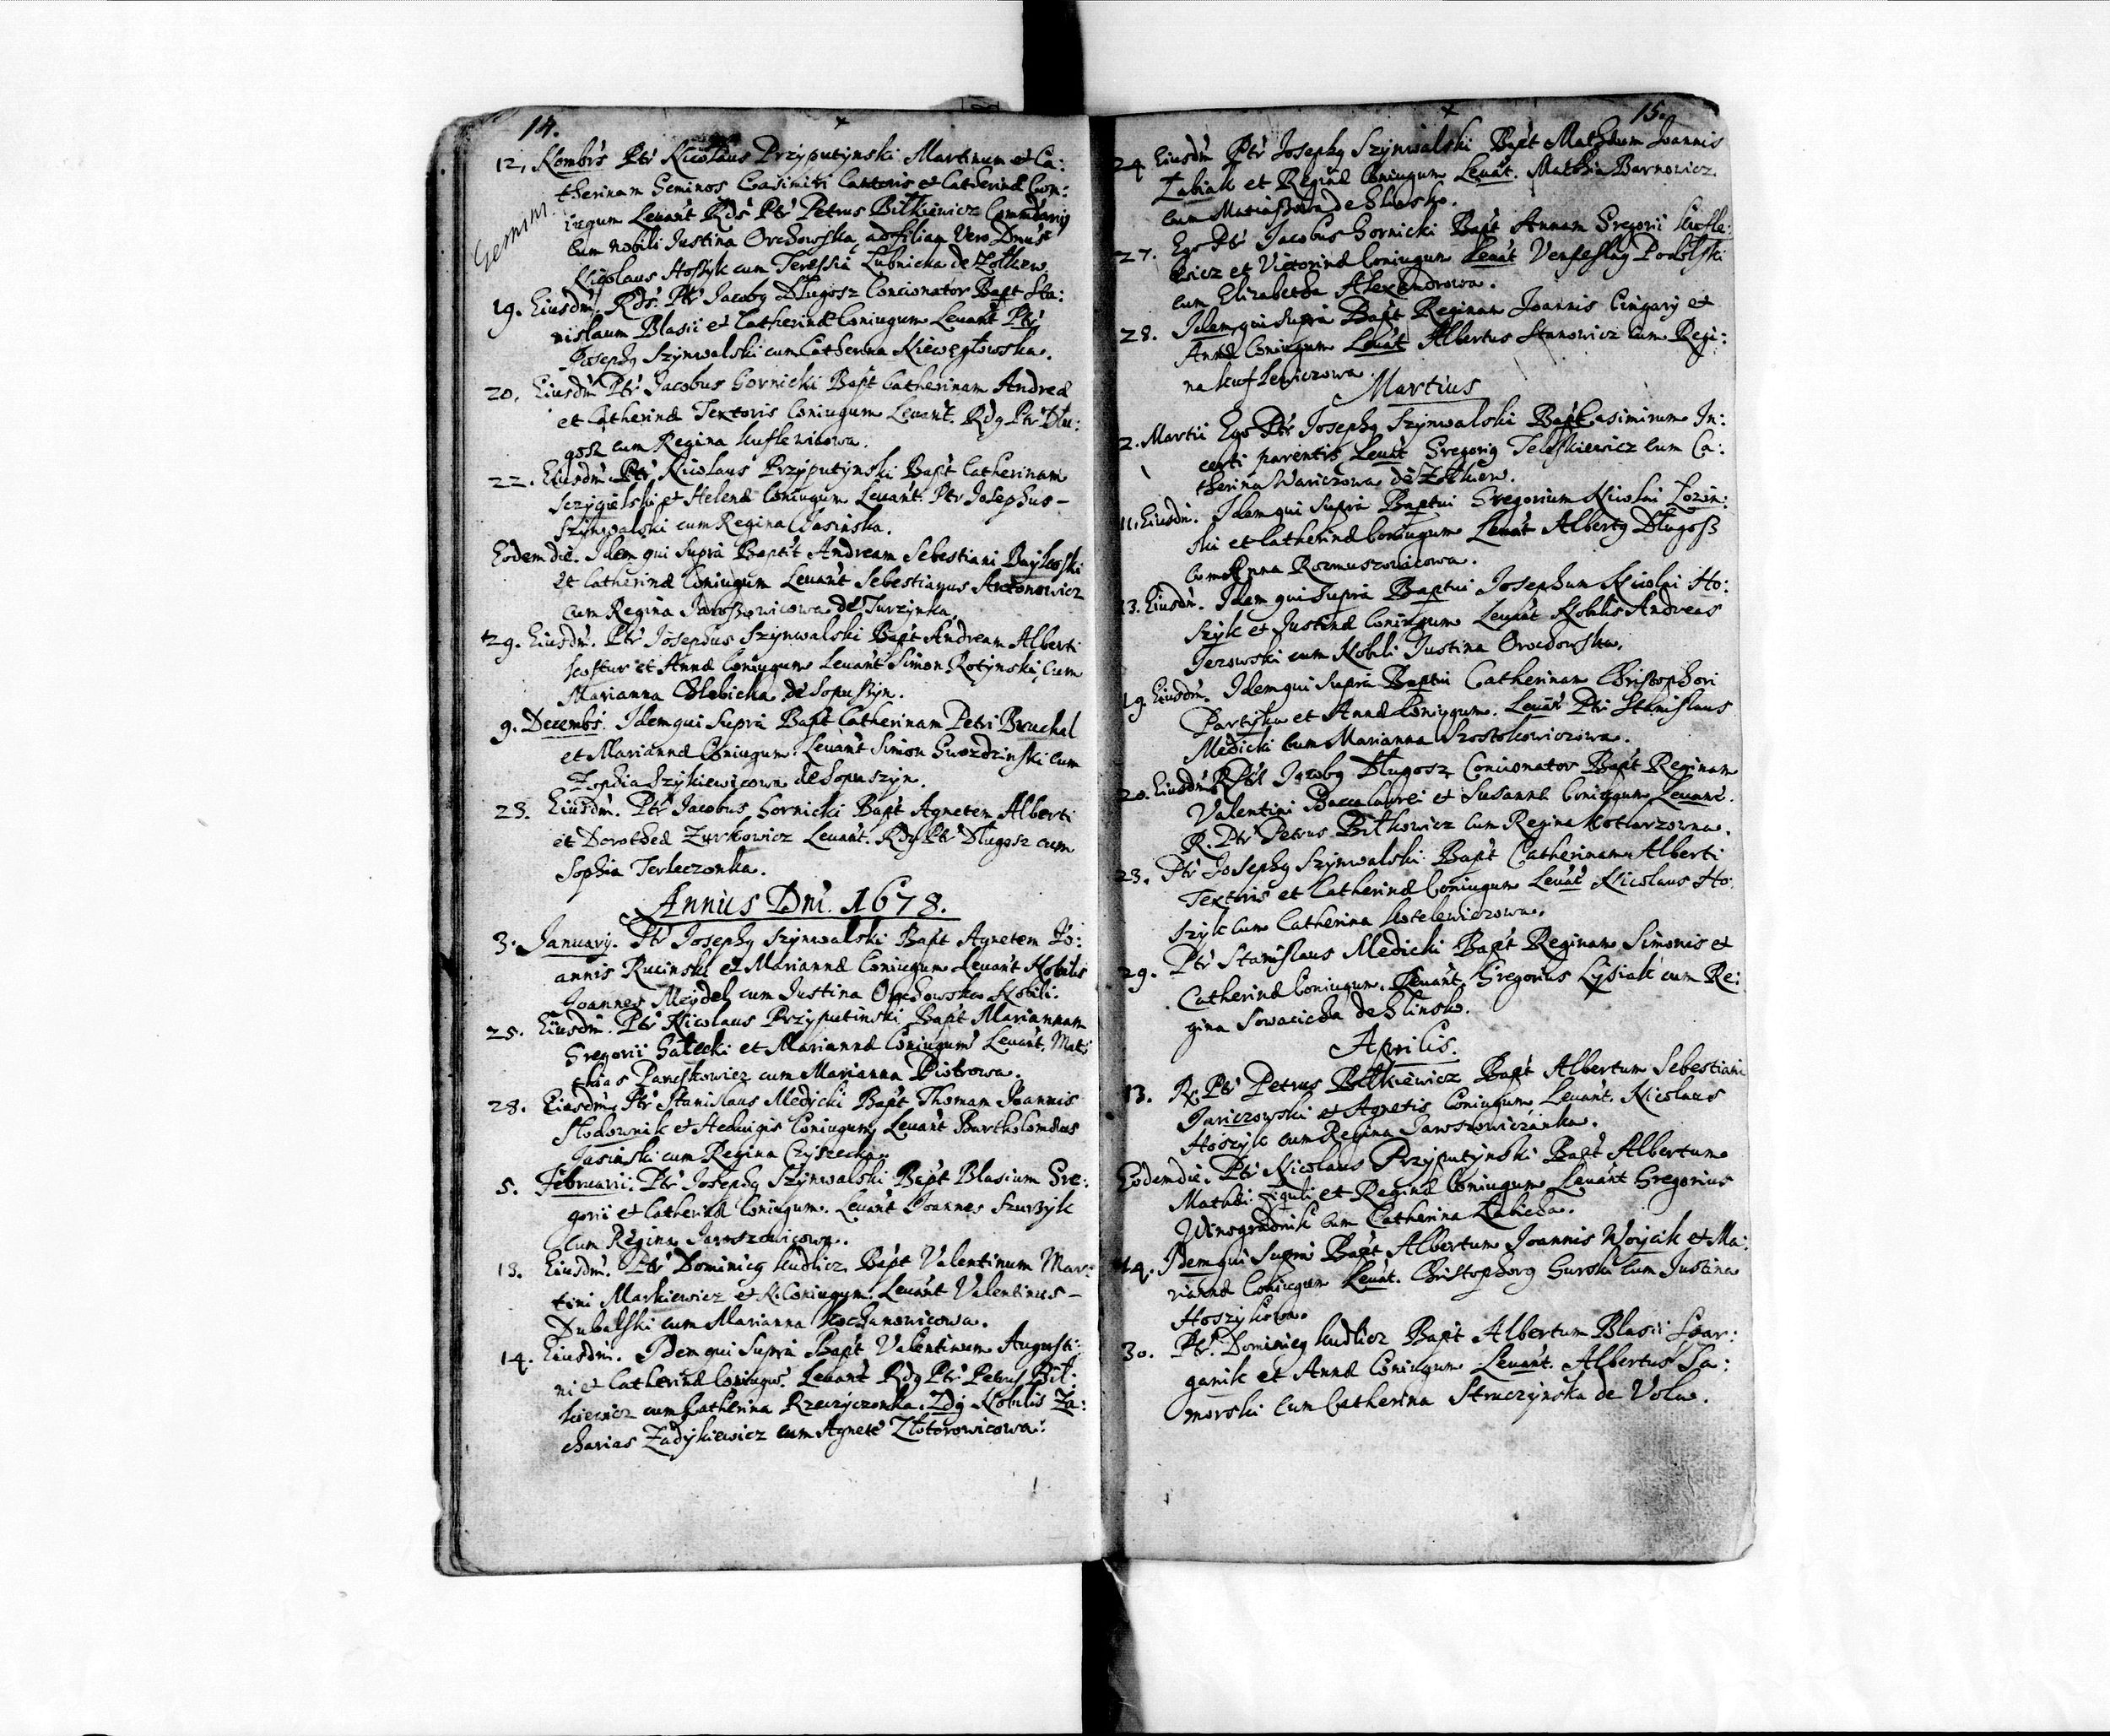 14.
12. Nombrs Ptr Nicolaus Przyputynski Martinum et Ca:
therinam Geminos Casimiri Cantoris et Catherinæ Con:
Gemini.
iugum Levant Rds Ptr Petrus Bilkiewicz Commdarius
Cum Nobili Justina Orchowska, ad filiam Vero Dnus
Nicolaus Hoszyk cum Teressia Lubnicka de Zolkiew.
19. Eiusdm. Rds. Ptr Jacobg Długosz Concionator Bapt Sta:
nislaum Blasii et Catherinæ Coniugum Levant Ptr
Josephg Szynwalski cum Catherina Niewęgłowska.
20. Eiusdm Ptr Jacobus Gornicki Bapt Catherinam Andreæ
et Catherinæ Textoris Coniugum Levant. Rdg Ptr Dłu:
gosz cum Regina Kuflewicowa.
22. Eiusdm Ptr Nicolaus Przyputynski Bapt Catherinam
Sczygielski et Helenæ Coniugum Levant. Ptr Josephus -
Szynwalski cum Regina Jasinska.
Eodem die. Idem qui supra Baptit Andream Sebestiani Baykoski
et Catherinæ Coniugum Levant Sebestianus Antonowicz
Cum Regina Jaroszowicowa de Turzynka.
29. Eiusdm. Ptr Josephus Szynwalski Bapt Andream Alberti
Kostur et Annæ Coniugum Levant Simon Rotynski Cum
Marianna Chlebicka de Sopuszyn.
9. Decembs. Idem qui supra Bapt Catherinam Petri Bruchal
et Mariannæ Coniugum. Levant Simon Gwozdzinski cum
Zophia Szykiewicowa de Sopuszyn.
23. Eiusdm. Ptr Jacobus Gornicki Bapt Agnetem Alberti
et Dorotheæ Zurkowicz Levant. Rdg Ptr Długosz cum
Sophia Terleczonka.
Annus Dni. 1678.
3. Januarij. Ptr Josephg Szynwalski Bapt Agnetem Jo:
annis Rucinski et Mariannæ Coniugum Levant Nobilis
Joannes Meydel cum Justina Orchowska Nobili.
25. Eiusdm. Ptr Nicolaus Przyputinski Bapt Mariannam
Gregorii Gałecki et Mariannæ Coniugum Levant. Mat:
thias Panefkowicz cum Marianna Piotrowa.
28. Eiusdm. Ptr Stanislaus Medycki Bapt Thomam Joannis
Słodownik et Hedwigis Coniugum Levant Bartholomæus
Jasinski cum Regina Czyszecka.
5. Februarii. Ptr Josephg Szynwalski Bapt Blasium Gre:
gorii et Catherinæ Coniugum. Levant Joannes Szurzyk
Cum Regina Jaroszowicowa.
13. Eiusdm. Ptr Dominicg Kudlicz Bapt Valentinum Mar:
tini Markiewicz et R. Coniugum. Levant Valentinus -
Dubalski cum Marianna Kochanowicowa.
14. Eiusdm. Idem qui supra Bapt Valentinum Augusti:
ni et Catherinæ Coniugu. Levant Rdg Ptr Petrus Bil:
kiewicz cum Catherina Rzeczyczonka. Idg Nobilis Za:
charias Zadykiewicz cum Agnete Złotorowicowa.
15.
24. Eiusdm Ptr Josephg Szynwalski Bapt Mathæum Joannis
Zabiak et Reginæ Coniugum Levat. Mathia Barnowicz.
cum Mariaszowa de Glinsko.
27. Ego Ptr Jacobus Gornicki Bapt Annam Gregorii Kufle:
wicz et Victorinæ Coniugum Levat Venseslag Podolski
cum Elizabetha Alexandrowa.
28. Idem qui supra Bapt Reginam Joannis Cingary et
Annæ Coniugum Levat Albertus Stanowicz cum Regi:
na Kuflewiczowa.
Martius
2. Martii Ego Ptr Josephg Szynwalski Bapt Casimirum In:
certi parentis Levat Gregorig Teleskiewicz cum Ca:
therina Wariczowa de Zolkiew.
11. Eiusdm. Idem qui supra Baptui Gregorium Nicolai Lozin:
ski et Catherinæ Coniugum Levat Albertg Długosz
Cum Anna Rozmuszowicowa.
13. Eiusdm. Idem qui supra Baptui Josephum Nicolai Ho:
szyk et Justinæ Coniugum Levant Nobilis Andreas
Jezowski cum Nobili Justina Orochowska.
19. Eiusdm. Idem qui supra Baptui Catherinam Christophori
Partyka et Annæ Coniugum. Levat Ptr Stanislaus
Medicki Cum Marianna Szostokowiczowa.
20. Eiusdm R. Ptr Jacobg Długosz Concionator Bapt Reginam
Valentini Baccalaurei et Susannæ Coniugum Levant.
R. Ptr Petrus Bilkowicz Cum Regina Kotlarzowna.
23. Ptr Josephg Szynwalski Bapt Catherinam Alberti
Textoris et Catherinæ Coniugum Levat Nicolaus Ho:
szyk Cum Catherina Kotelewiczowa.
29. Ptr Stanislaus Medicki Bapt Reginam Simonis et
Catherinæ Coniugum. Levant. Gregorius Lysiak cum Re:
gina Sowacicha de Glinsk.
Aprilis.
13. R. Ptr Petrus Bilkiewicz Bapt Albertum Sebestiani
Juriczowski et Agnetis Coniugum Levant. Nicolaus
Hoszyk cum Regina Jaroszowiczanka.
Eodem die. Ptr Nicolaus Przyputynski Bapt Albertum
Mathæi figuli et Reginæ Coniugum Levant Gregorius
Winogradnik Cum Catherina Labicka.
14. Idem qui supra Bapt Albertum Joannis Woycik et Ma:
riannæ Coniugum Levat. Christophorg Gurski Cum Justina
Hoszykowa.
30. Ptr. Dominicg Kudlicz Bapt Albertum Blasii Szar:
ganik et Annæ Coniugum Levant. Albertus Ja:
morski Cum Catherina Struczynska de Vola.